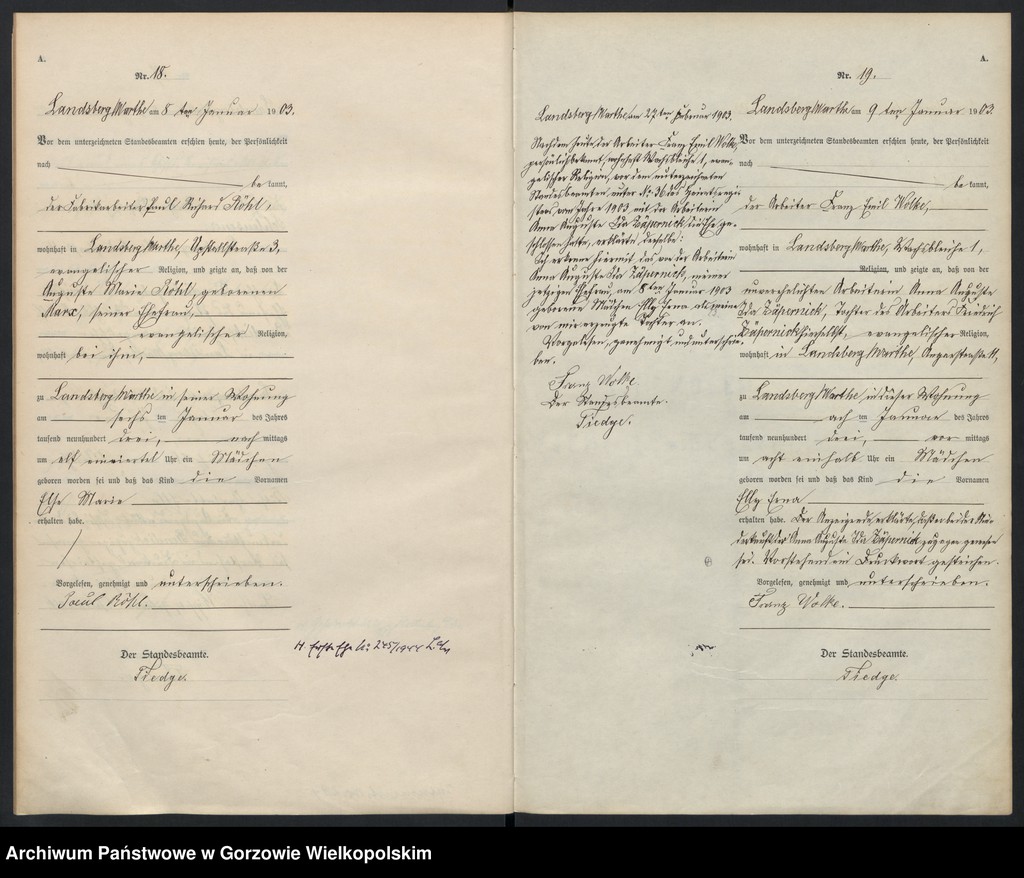 A.
Nr. 18.
Landsberg Warthe am 8 ten Januar 1903.
Vor dem unterzeichneten Standesbeamten erschien heute, der Persönlichkeit
nach
be kannt,
der Fabrikarbeiter Paul Richard Röhl,
wohnhaft in Landsberg Warthe, Upstallstraße 3,
evangelischer Religion, und zeigte an, daß von der
Auguste Marie Röhl, geborenen
seiner Ehefrau,
evangelischer Religion,
wohnhaft bei ihm,
zu Landsberg Warthe in seiner Wohnung
am sechs ten Januar des Jahres
tausend neunhundert drei, nach mittags
um elf einviertel Uhr ein Mädchen
geboren worden sei und daß das Kind die Vornamen
Else Marie
erhalten habe.
Vorgelesen, genehmigt und unterschrieben.
Paul Röhl.
Der Standesbeamte.
Tiedge.
Landsberg Warthe am 27 ten Februar 1903.
Nachdem heute der Arbeiter Franz Emil Wolke,
persönlich bekannt, wohnhaft Wachsbleiche 1, evan-
gelischer Religion, vor dem unterzeichneten
Standesbeamten unter No 36 des Heiratsregi-
sters vom Jahre 1903 mit der Arbeiterin
Anna Auguste Ida Zäpernick die Ehe ge-
schlossen hatte, erklärte derselbe:
Ich erkenne hiermit das von der Arbeiterin
Anna Auguste Ida Zäpernick, meiner
jetzigen Ehefrau, am 8 ten Januar 1903
geborene Mädchen Elly Erna als meine
von mir erzeugte Tochter an.
Vorgelesen, genehmigt und unterschrie-
ben.
Franz Wolke
Der Standesbeamte.
Tiedge.
A.
Nr. 19.
Landsberg Warthe am 9 ten Januar 1903
Vor dem unterzeichneten Standesbeamten erschien heute, der Persönlichkeit
nach
be kannt,
der Arbeiter Franz Emil Wolke,
wohnhaft in Landsberg Warthe, Wachsbleiche 1,
Religion, und zeigte an, daß von der
unverehelichten Arbeiterin Anna Auguste
Ida Zäpernick, Tochter des Arbeiters
Zäpernick hierselbst, evangelischer Religion,
wohnhaft in Landsberg Warthe, Angerstraße 11,
zu Landsberg Warthe, in dieser Wohnung
am ach ten Januar des Jahres
tausend neunhundert drei, vor mittags
um acht einhalb Uhr ein Mädchen
geboren worden sei und daß das Kind die Vornamen
Elly Erna
erhalten habe. Der Anzeigende erklärte, daß er bei der Nie-
derkunft der Anna Auguste Ida Zäpernick zugegen gewesen
sei. Vorstehend ein Druckwort gestrichen.
Vorgelesen, genehmigt und unterschrieben.
Franz Wolke.
Der Standesbeamte.
Tiedge.
Archiwum Państwowe w Gorzowie Wielkopolskim